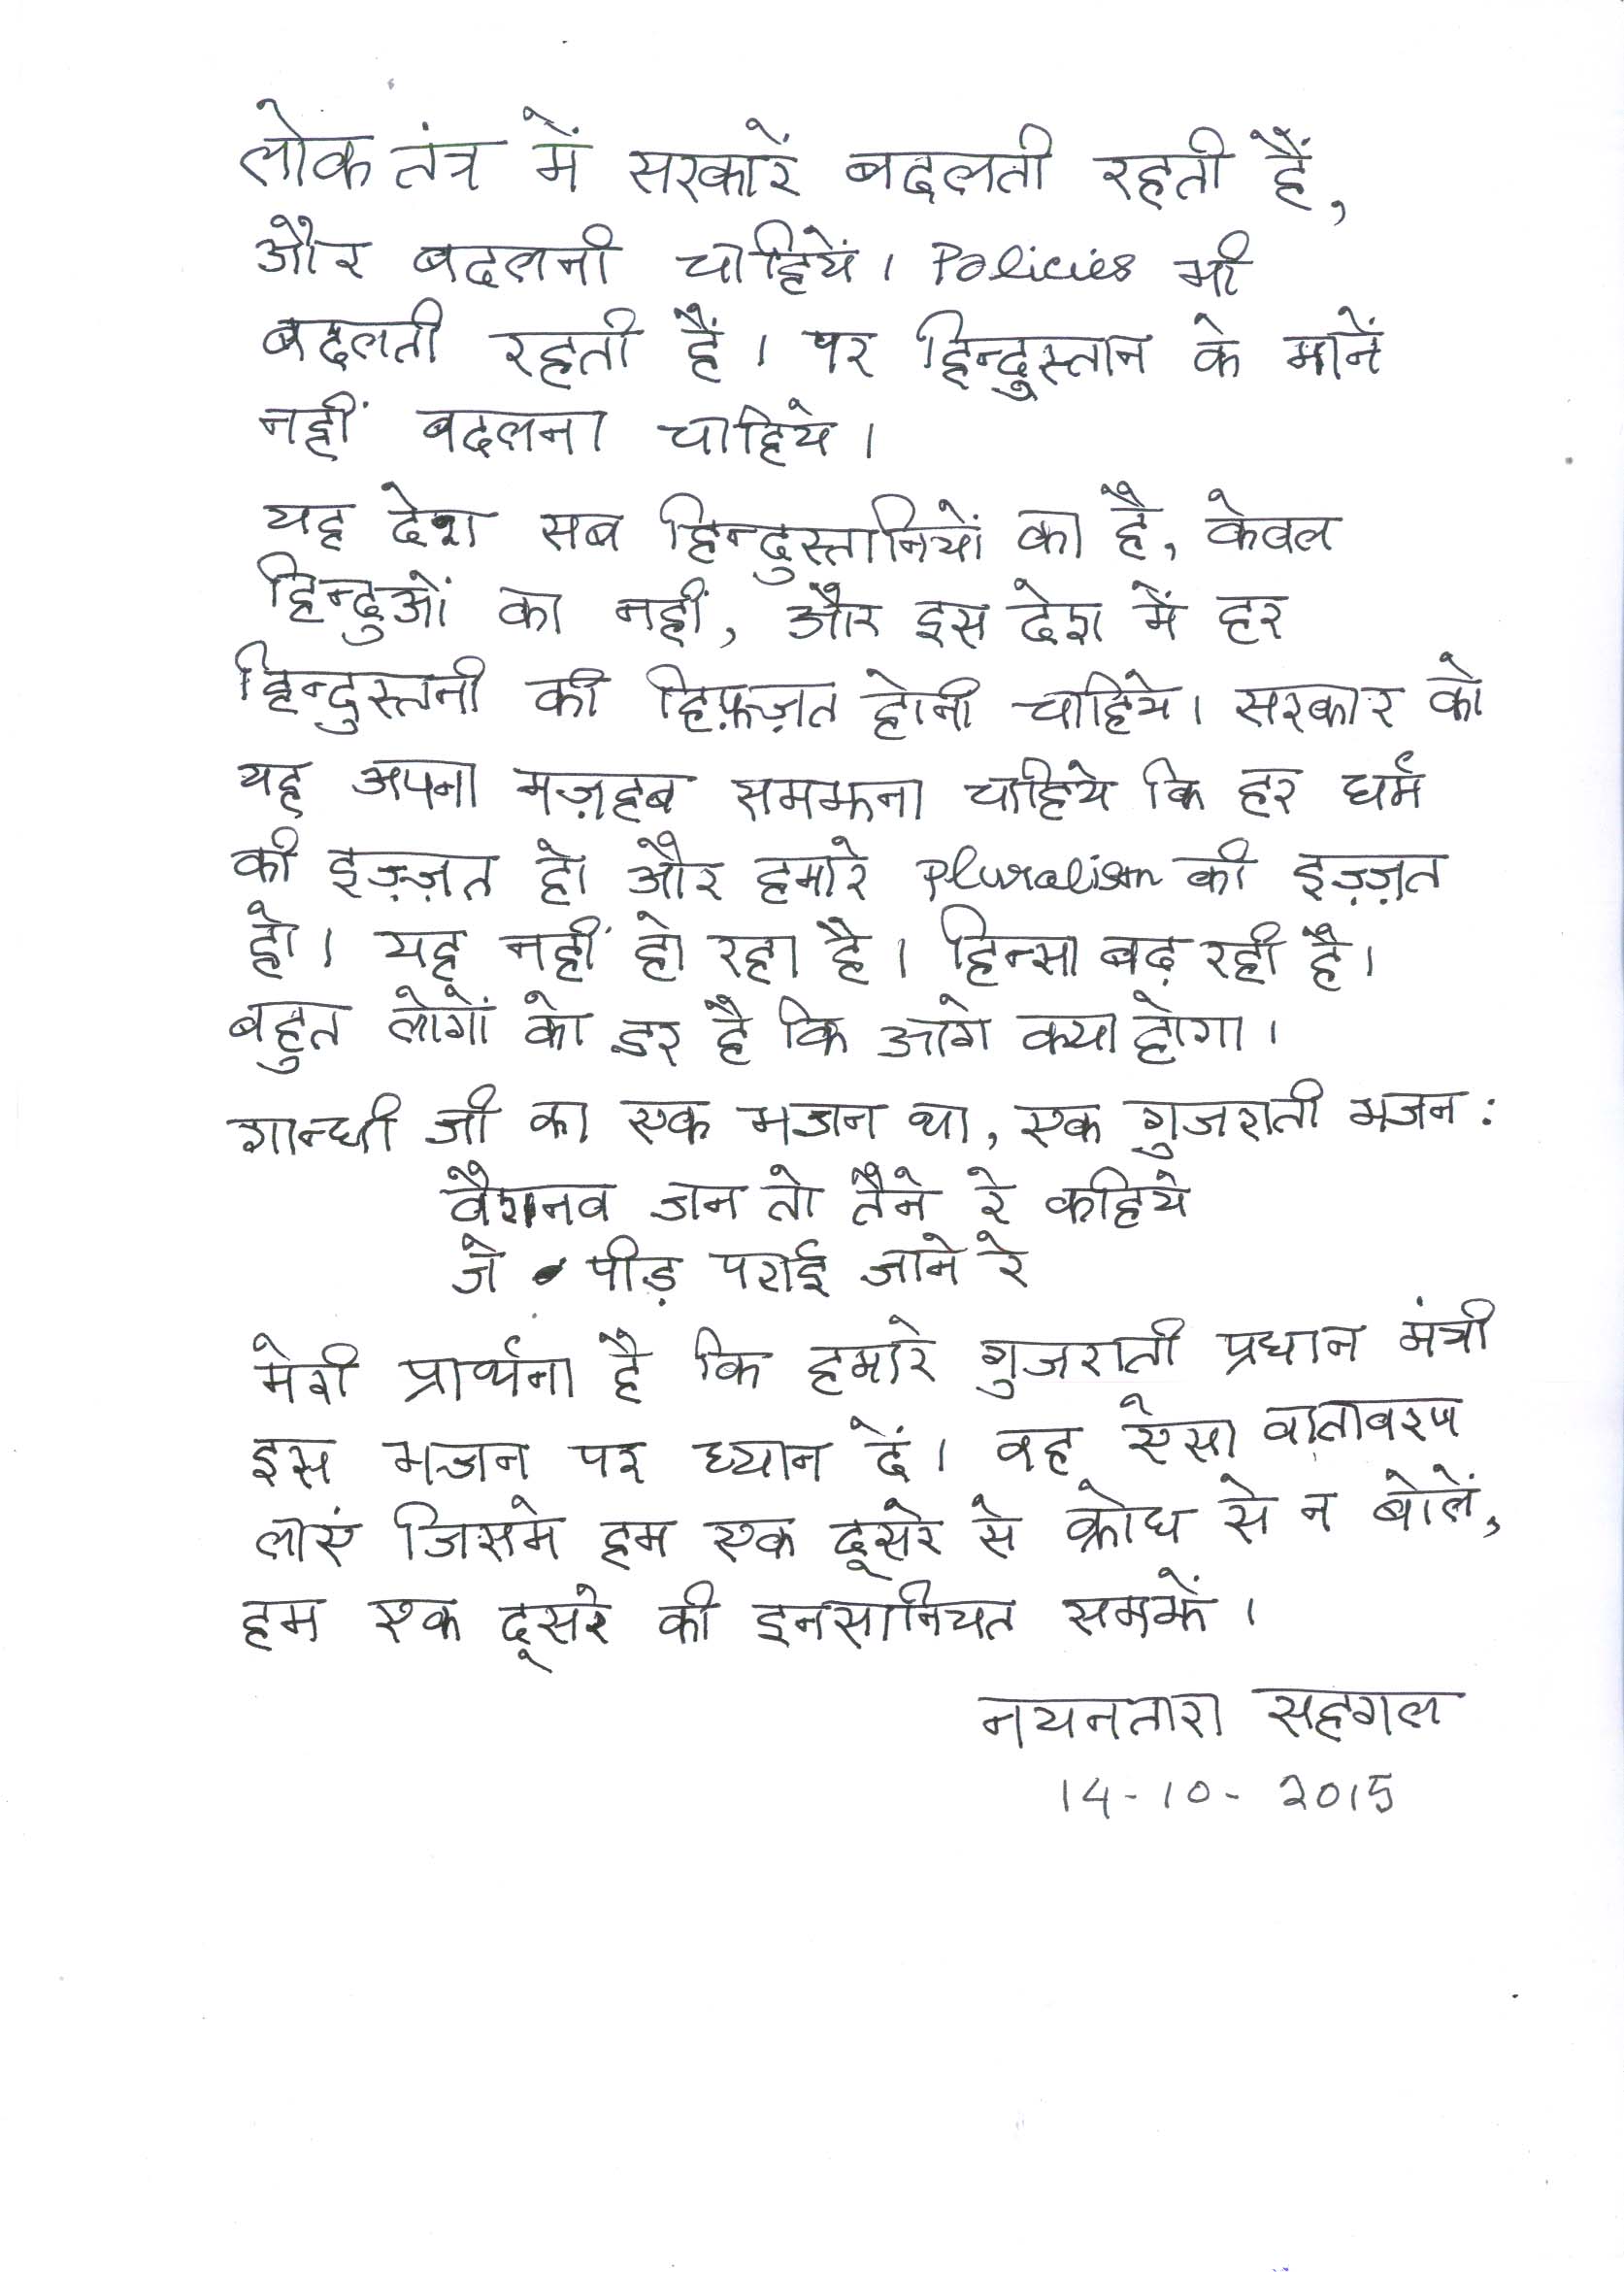 लोक तंत्र में सरकारें बदलती रहती हैं,
और बदलनी चाहियें। Policies भी
बदलती रहती हैं। पर हिन्दुस्तान के मानें
नहीं बदलना चाहिये।
यह देश सब हिन्दुस्तानियों का है, केवल
हिन्दुओं का नहीं, और इस देश में हर
हिन्दुस्तनी की हिफ़ज़त होनी चाहिये। सरकार को
यह अपना मज़हब समझना चाहिये कि हर धर्म
की इज़्ज़त हो और हमारे Pluralism की इज़्ज़त
हो। यह नहीं हो रहा है। हिन्सा बढ़ रही है।
बहुत लोगों को डर है कि आगे क्या होगा।
गान्धी जी का एक भजन था, एक गुजराती भजन:
वैशनव जन तो तैने रे कहिये
जे पीड़ पराई जाने रे
मेरी प्रार्थना है कि हमारे गुजराती प्रधान मंत्री
इस भजन पर ध्यान दें। वह ऐसा वातावरण
लाएं जिसमे हम एक दूसरे से क्रोध से न बोलें,
हम एक दूसरे की इनसानियत समझें।
नयनतारा सहगल
14-10-2015